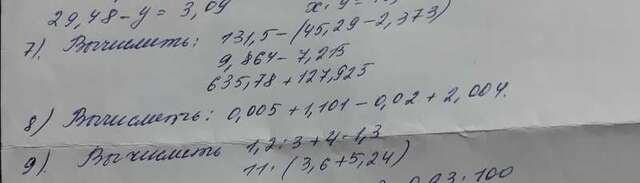 29,48 - y = 3,09
7). Вычислить: 131,5 - (45,29 - 2,373)
9,864 - 7,215
635,78 + 127,925
8) Вычислить: 0,005 + 1,101 - 0,02 + 2,004.
9). Вычислить 1,2 : 3 + 4 · 1,3
11 · (3,6 + 5,24)
0,93 : 100